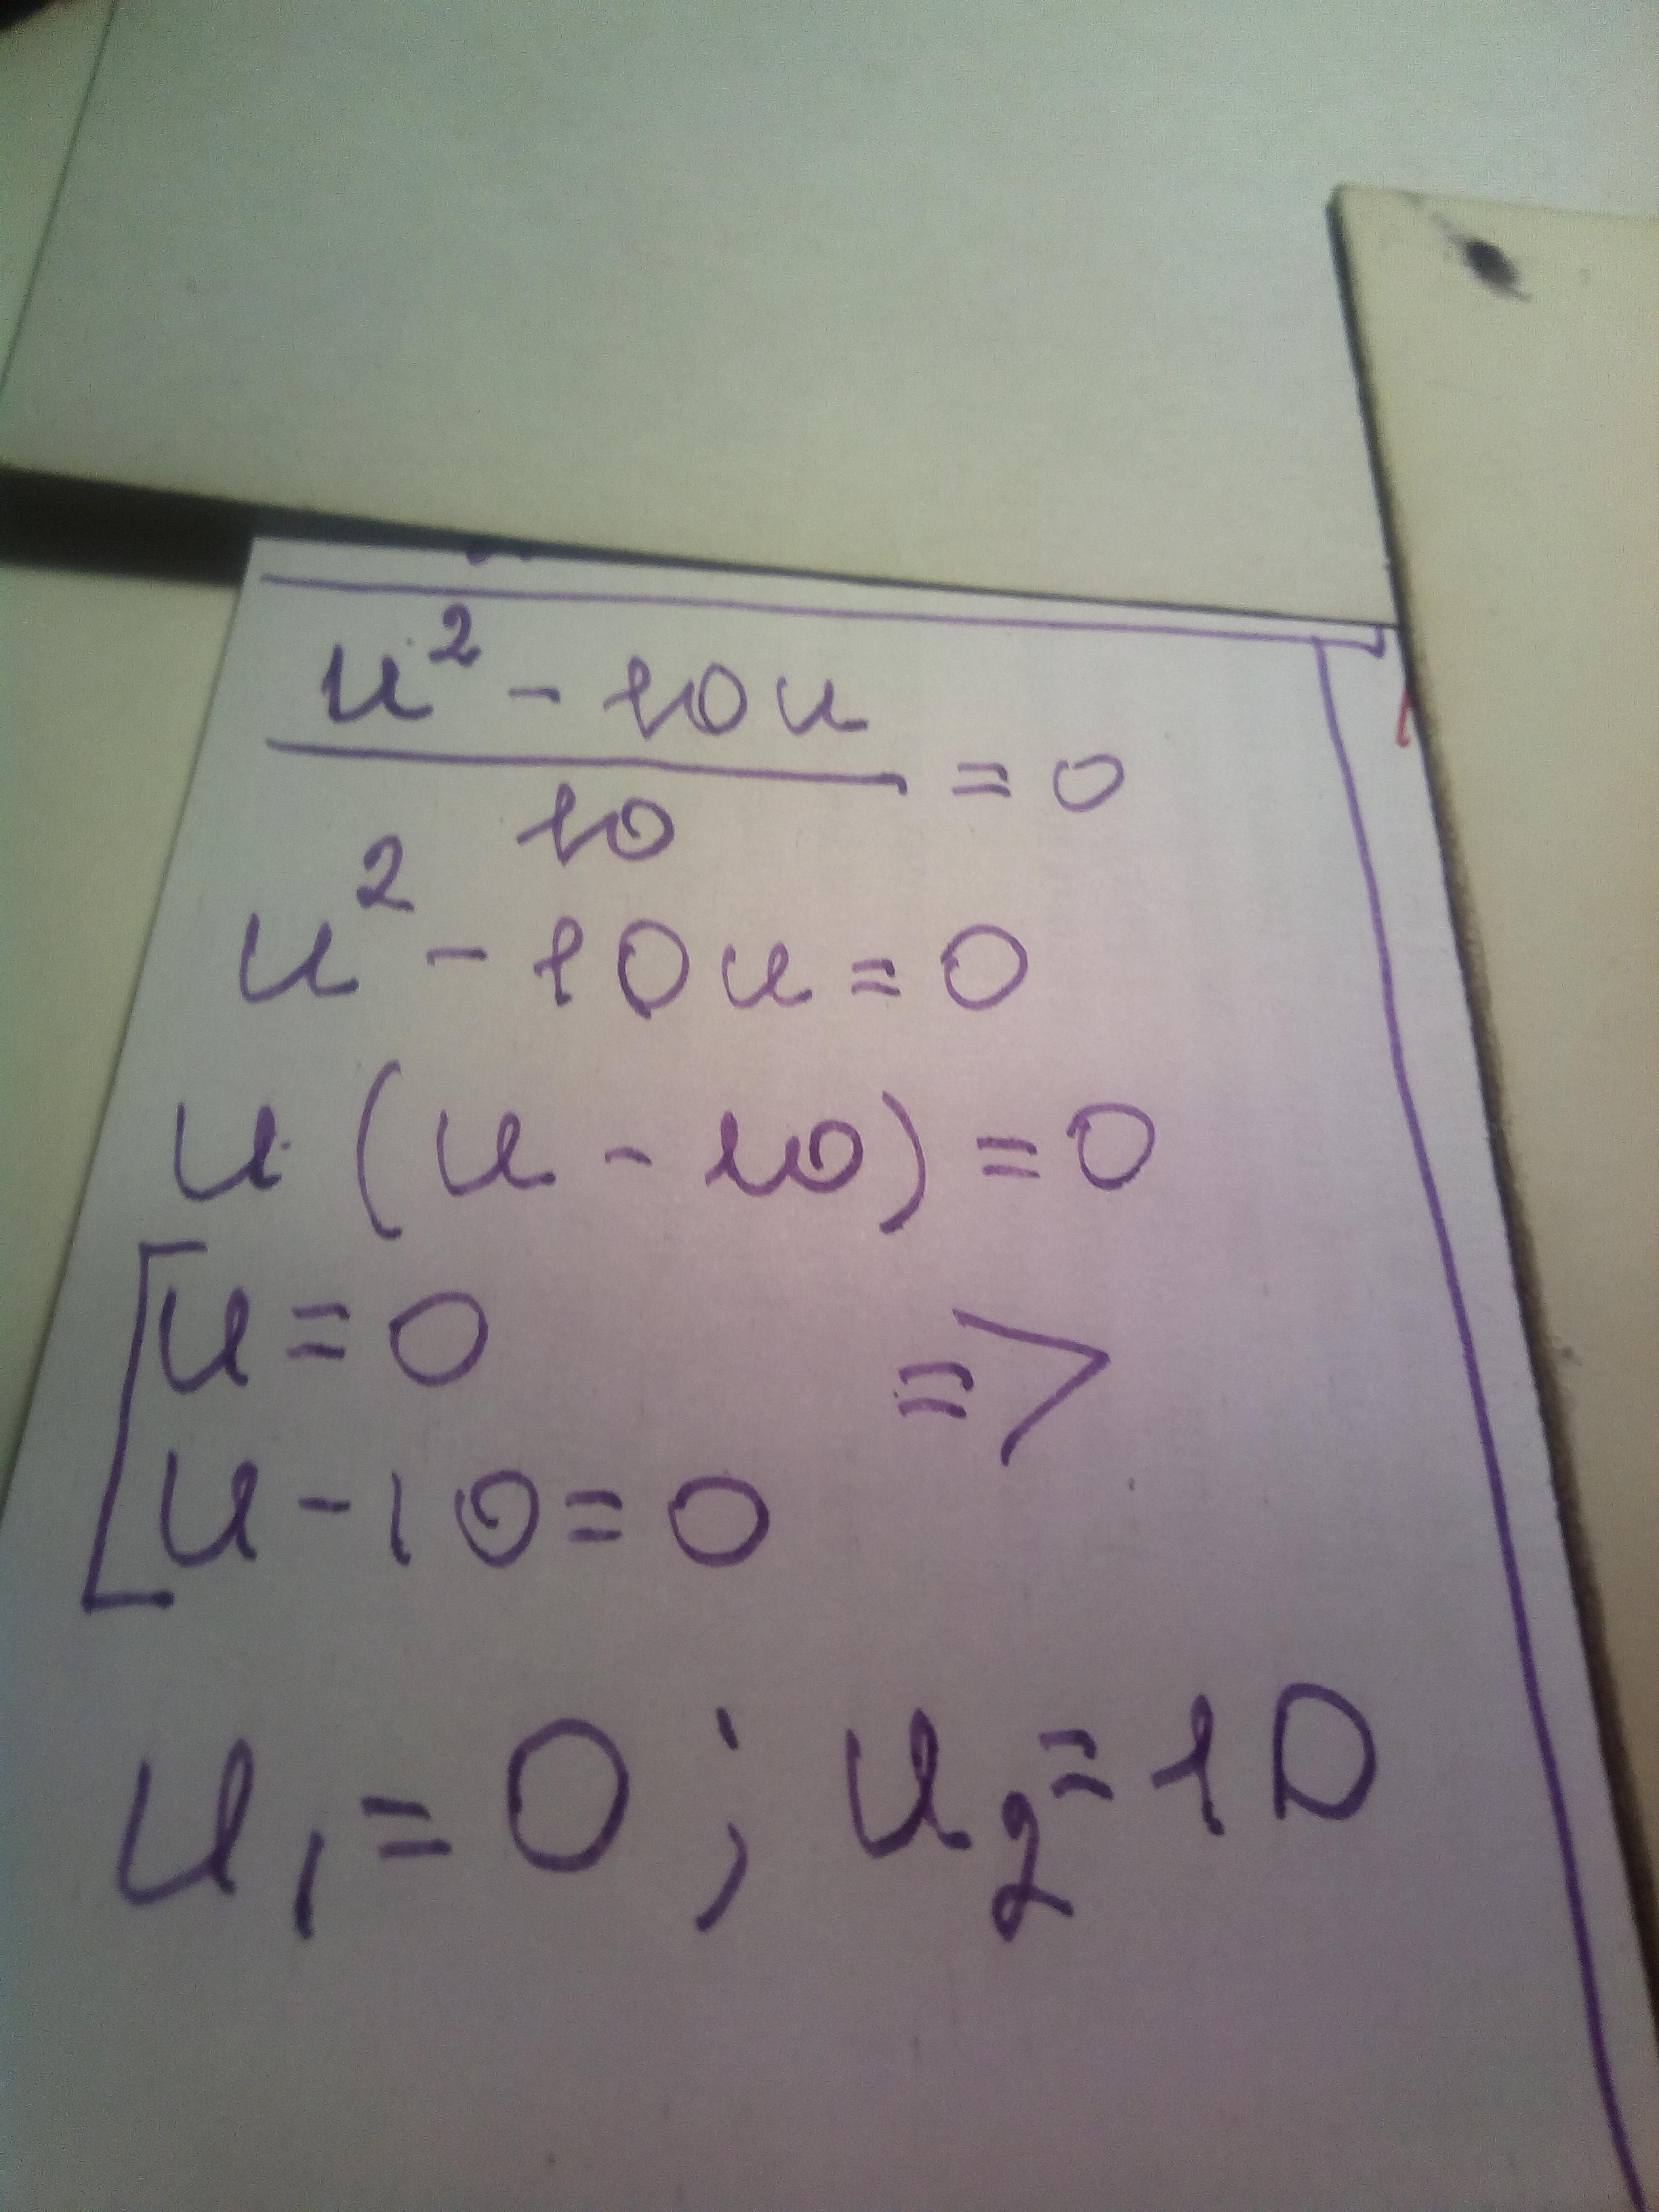 u² - 10u
/ 10 = 0
u² - 10u = 0
u (u - 10) = 0
[ u = 0
u - 10 = 0 =>
u₁ = 0 ; u₂ = 10